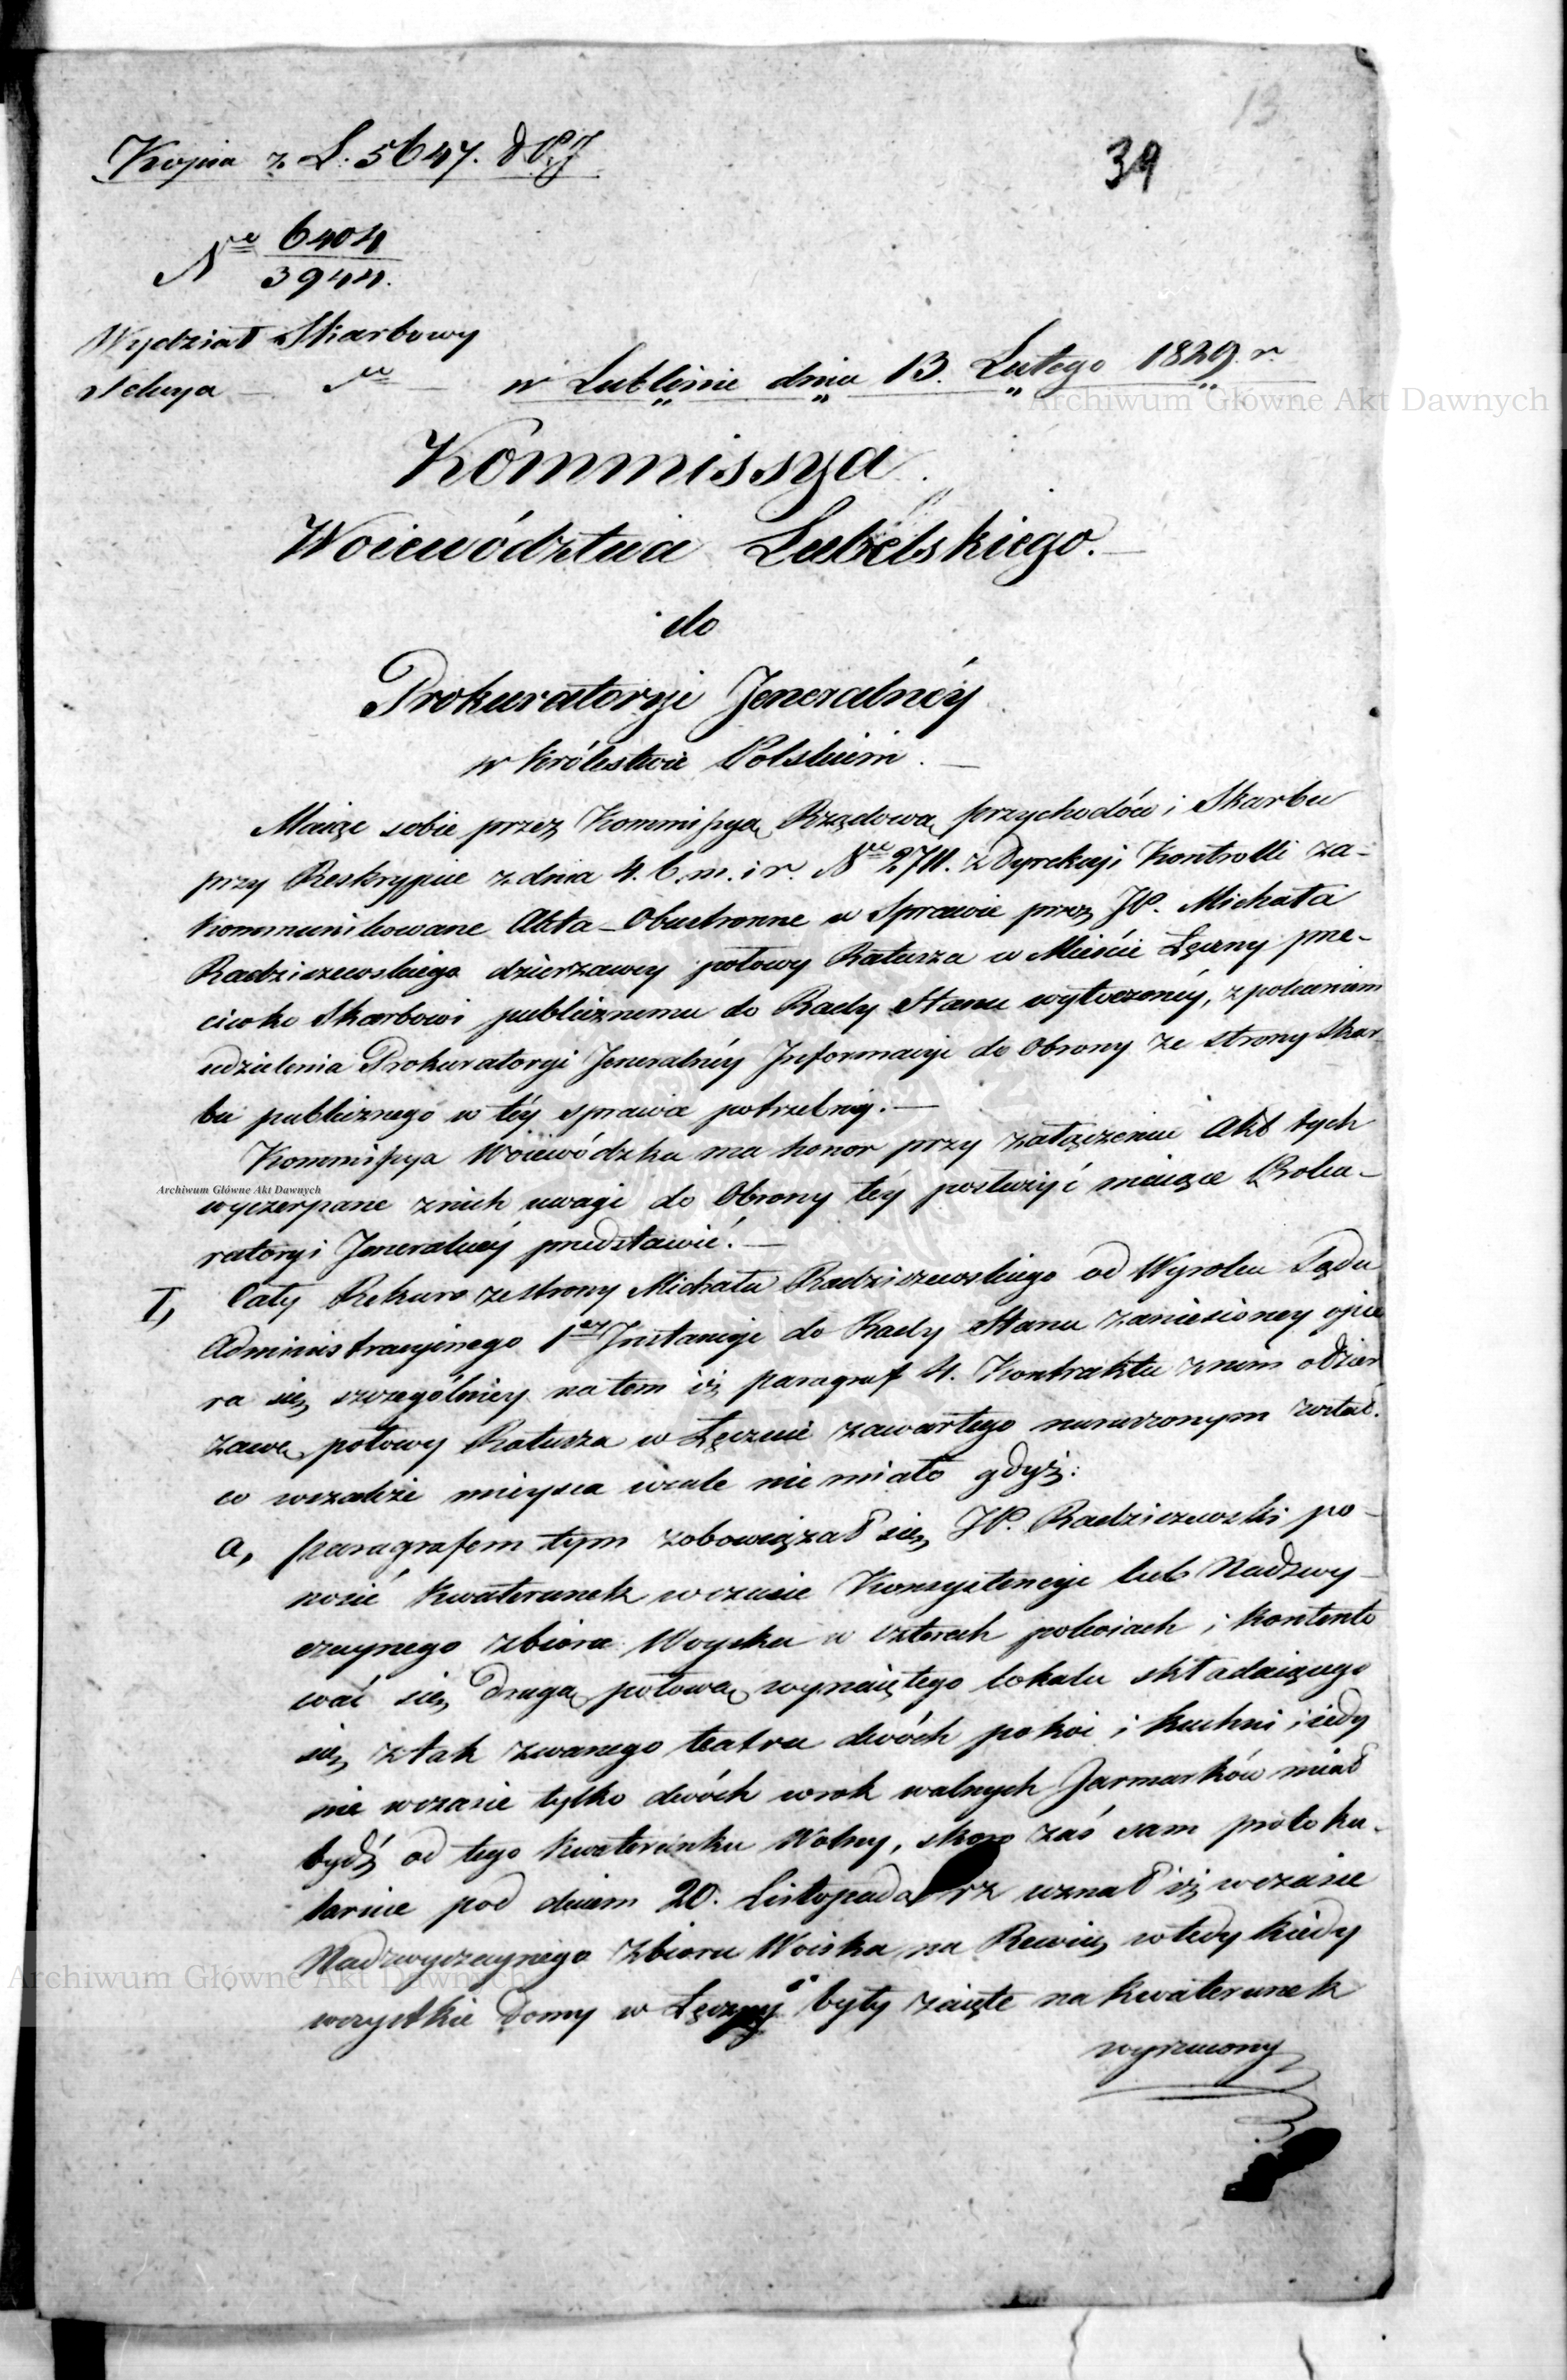 13
39
Kopia z L: 5647. d PJ
Nro 6404
3944.
Wydział Skarbowy
Sekcya — Nro —
w Lublinie dnia 13. Lutego 1829. r.
Kommissya
Woiewództwa Lubelskiego. —
do
Prokuratoryi Jeneralnéy
w Królestwie Polskiem. —
Maiąc sobie przez Kommissyą Rządową przychodów i Skarbu
przy Reskrypcie z dnia 4. b. m. i r. Nro 2711. z Dyrekcyi Kontrolli za-
kommunikowane Akta Obustronne w Sprawie przez JP. Michała
Radziszewskiego dzierzawcy połowy Ratusza w Mieście Łęczny prze-
ciwko Skarbowi publicznemu do Rady Stanu wytoczonéy, z poleceniem
udzielenia Prokuratoryi Jeneralnéy Informacyi do Obrony ze strony Skar
bu publicznego w téy sprawie potrzebnéy. —
Kommissya Woiewódzka ma honor przy załączeniu Akt tych
wyczerpane z nich uwagi do Obrony téy posłużyć maiące Proku-
ratoryi Jeneralnéy przedstawić. —
I, Cały Rekurs ze strony Michała Radziszewskiego od Wyroku Sądu
Administracyjnego 1er Instancyi do Rady Stanu zaniesioney opie
ra się szczególniey na tem iż paragraf 4. Kontraktu z nim o dzier
zawę połowy Ratusza w Łęcznie zawartego naruszonym został.
co wszakże mieysca wcale nie miało gdyż:
a, paragrafem tym zobowiązał się JP. Radziszewski po-
nosić kwaterunek w czasie Konsystencyi lub Nadzwy-
czaynego zbioru Woyska w czterech pokoiach i kontento
wać się drugą połową wynaiętego lokalu składaiącego
się z tak zwanego teatru dwóch pokoi i kuchni i iedy
nie w czasie tylko dwóch w rok walnych Jarmarków miał
bydź od tego kwaterunku Wolny, skoro zaś sam protoku-
larnie pod dniem 20. Listopada rz uznał iż w czasie
Nadzwyczaynego Zbioru Woiska na Rewię wtedy kiedy
wszystkie Domy w Łęczny były zaięte na kwaterunek
wyrzucony
Archiwum Główne Akt Dawnych
Archiwum Główne Akt Dawnych
Archiwum Główne Akt Dawnych